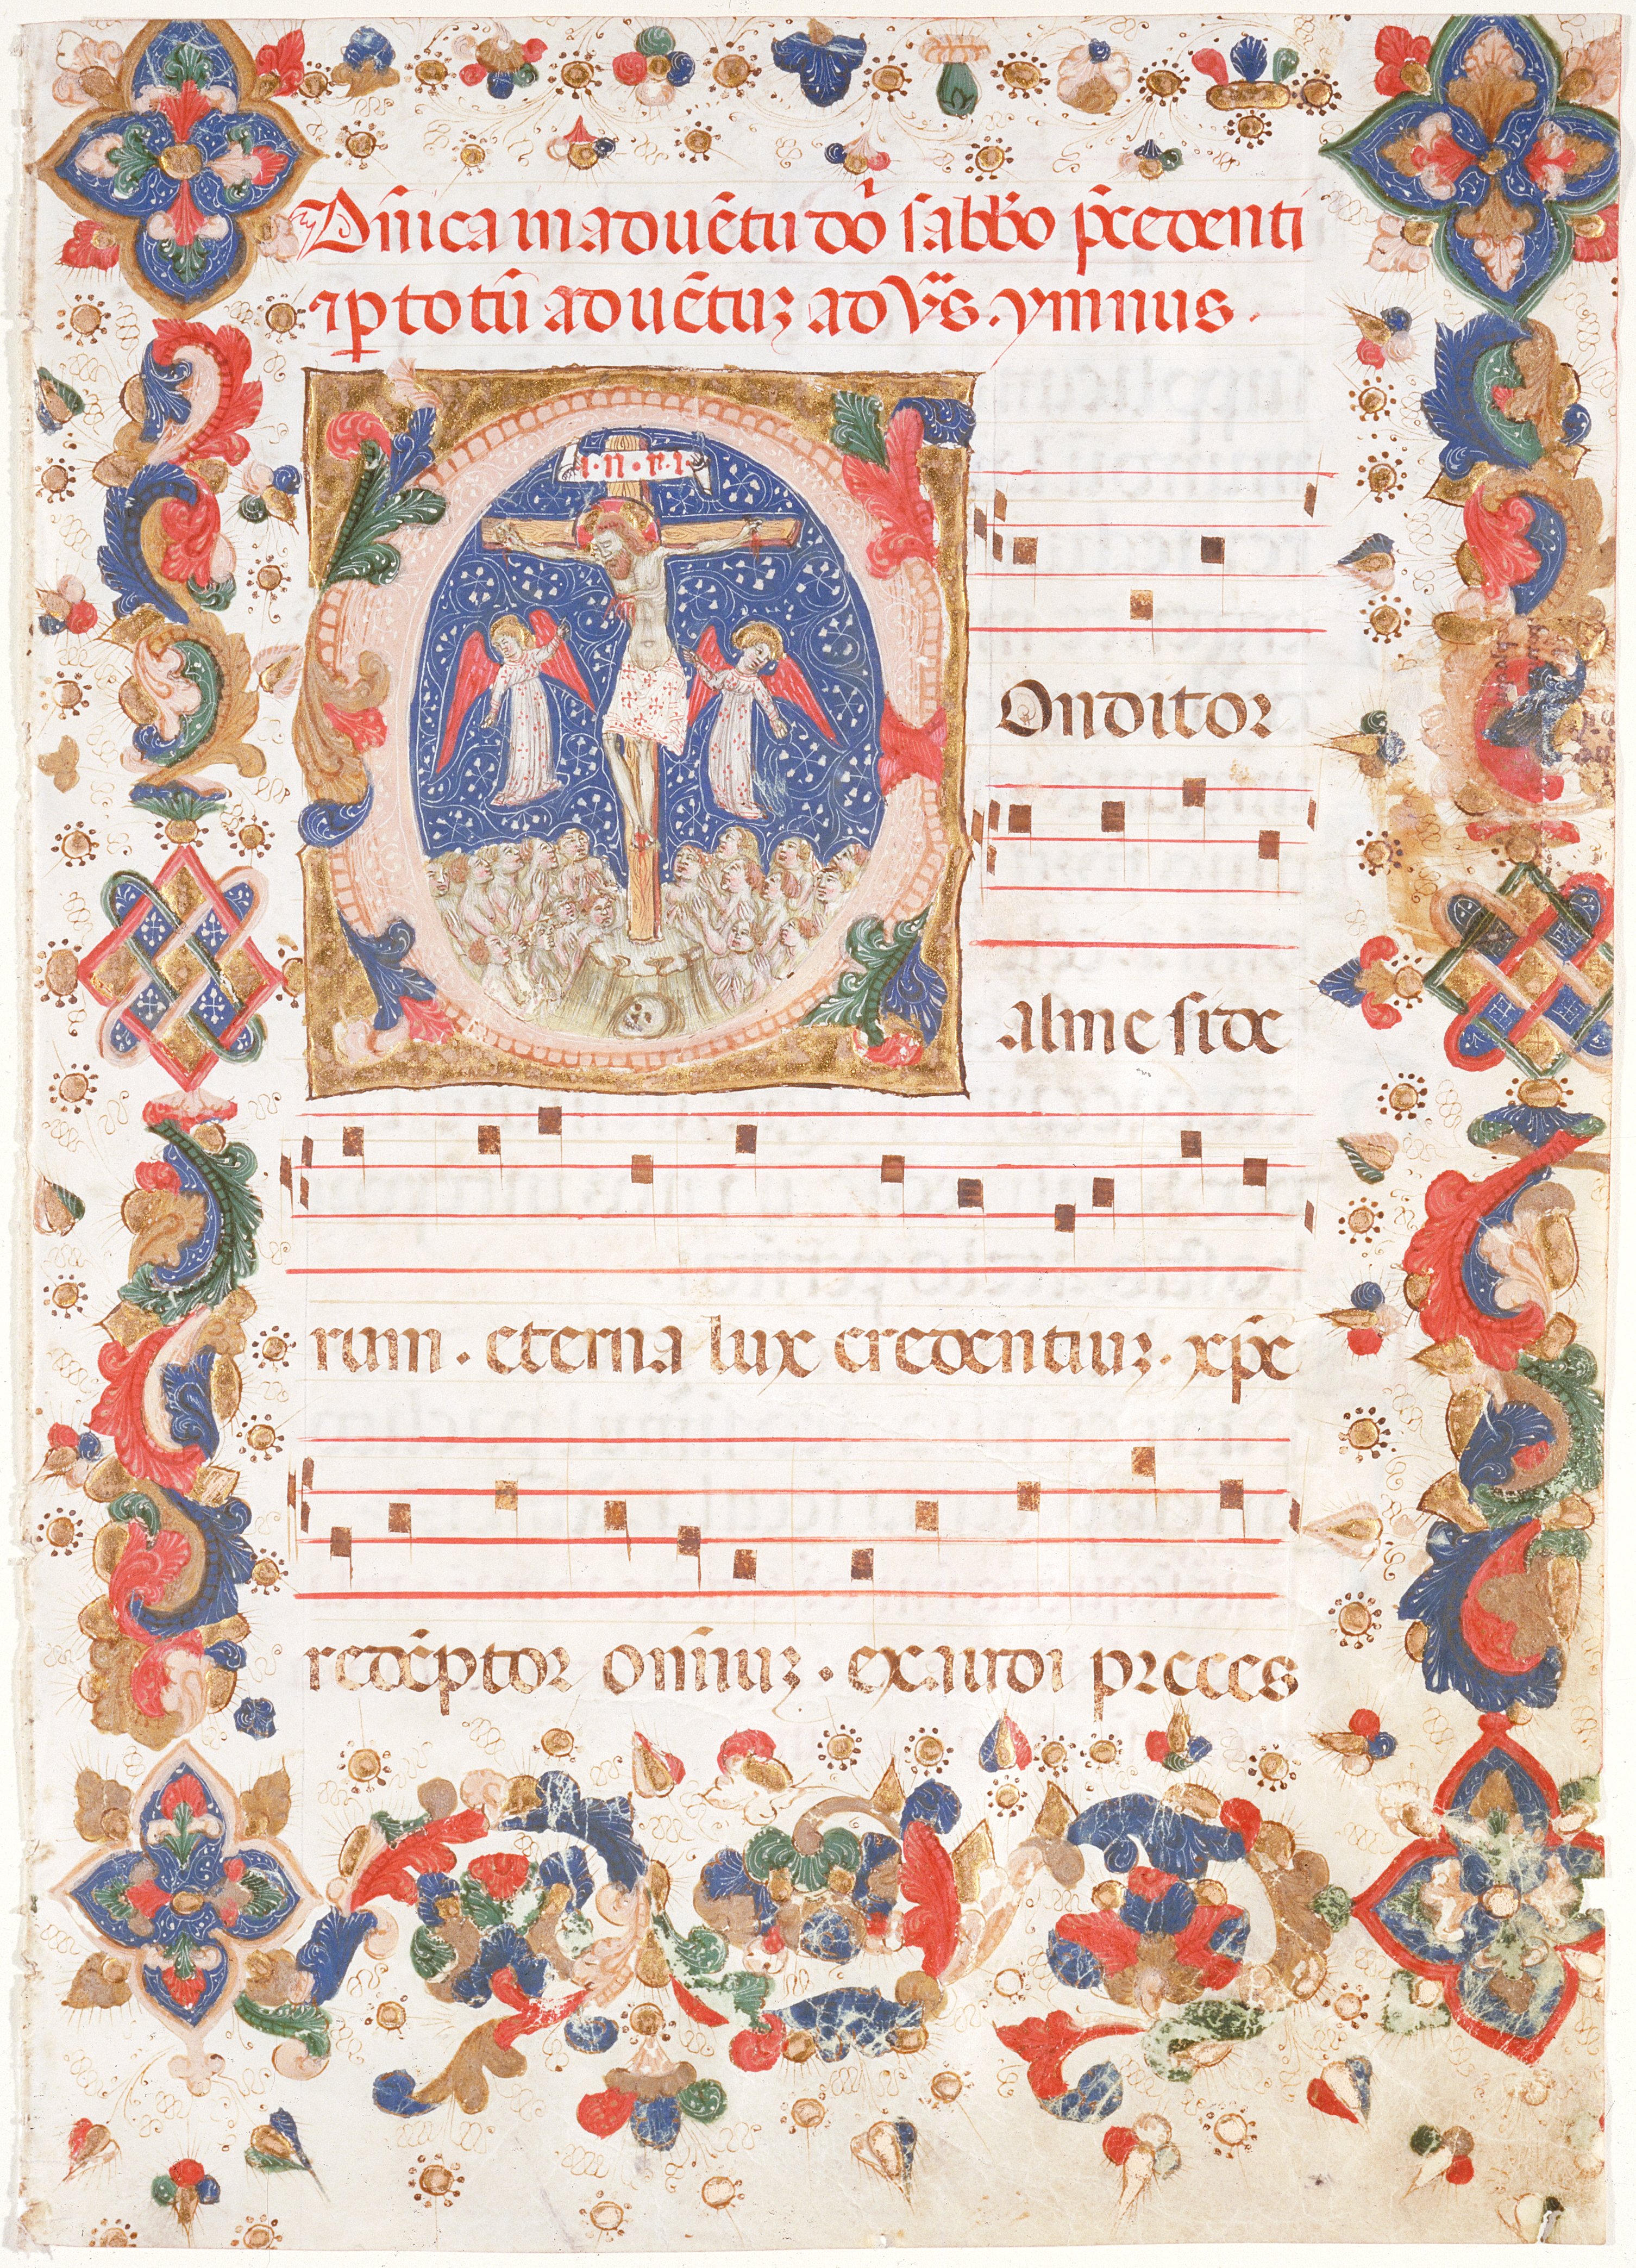 Dñica in aduētu dō sabbō p̄cedenti
⁊ ꝑ totū aduētuꝫ ad vr̃s. ymnus.
·I·N·R·I·
Onditor
alme side
rum. eterna lux credentiuꝫ. xp̄e
redēptor om̄iuꝫ. exaudi preces